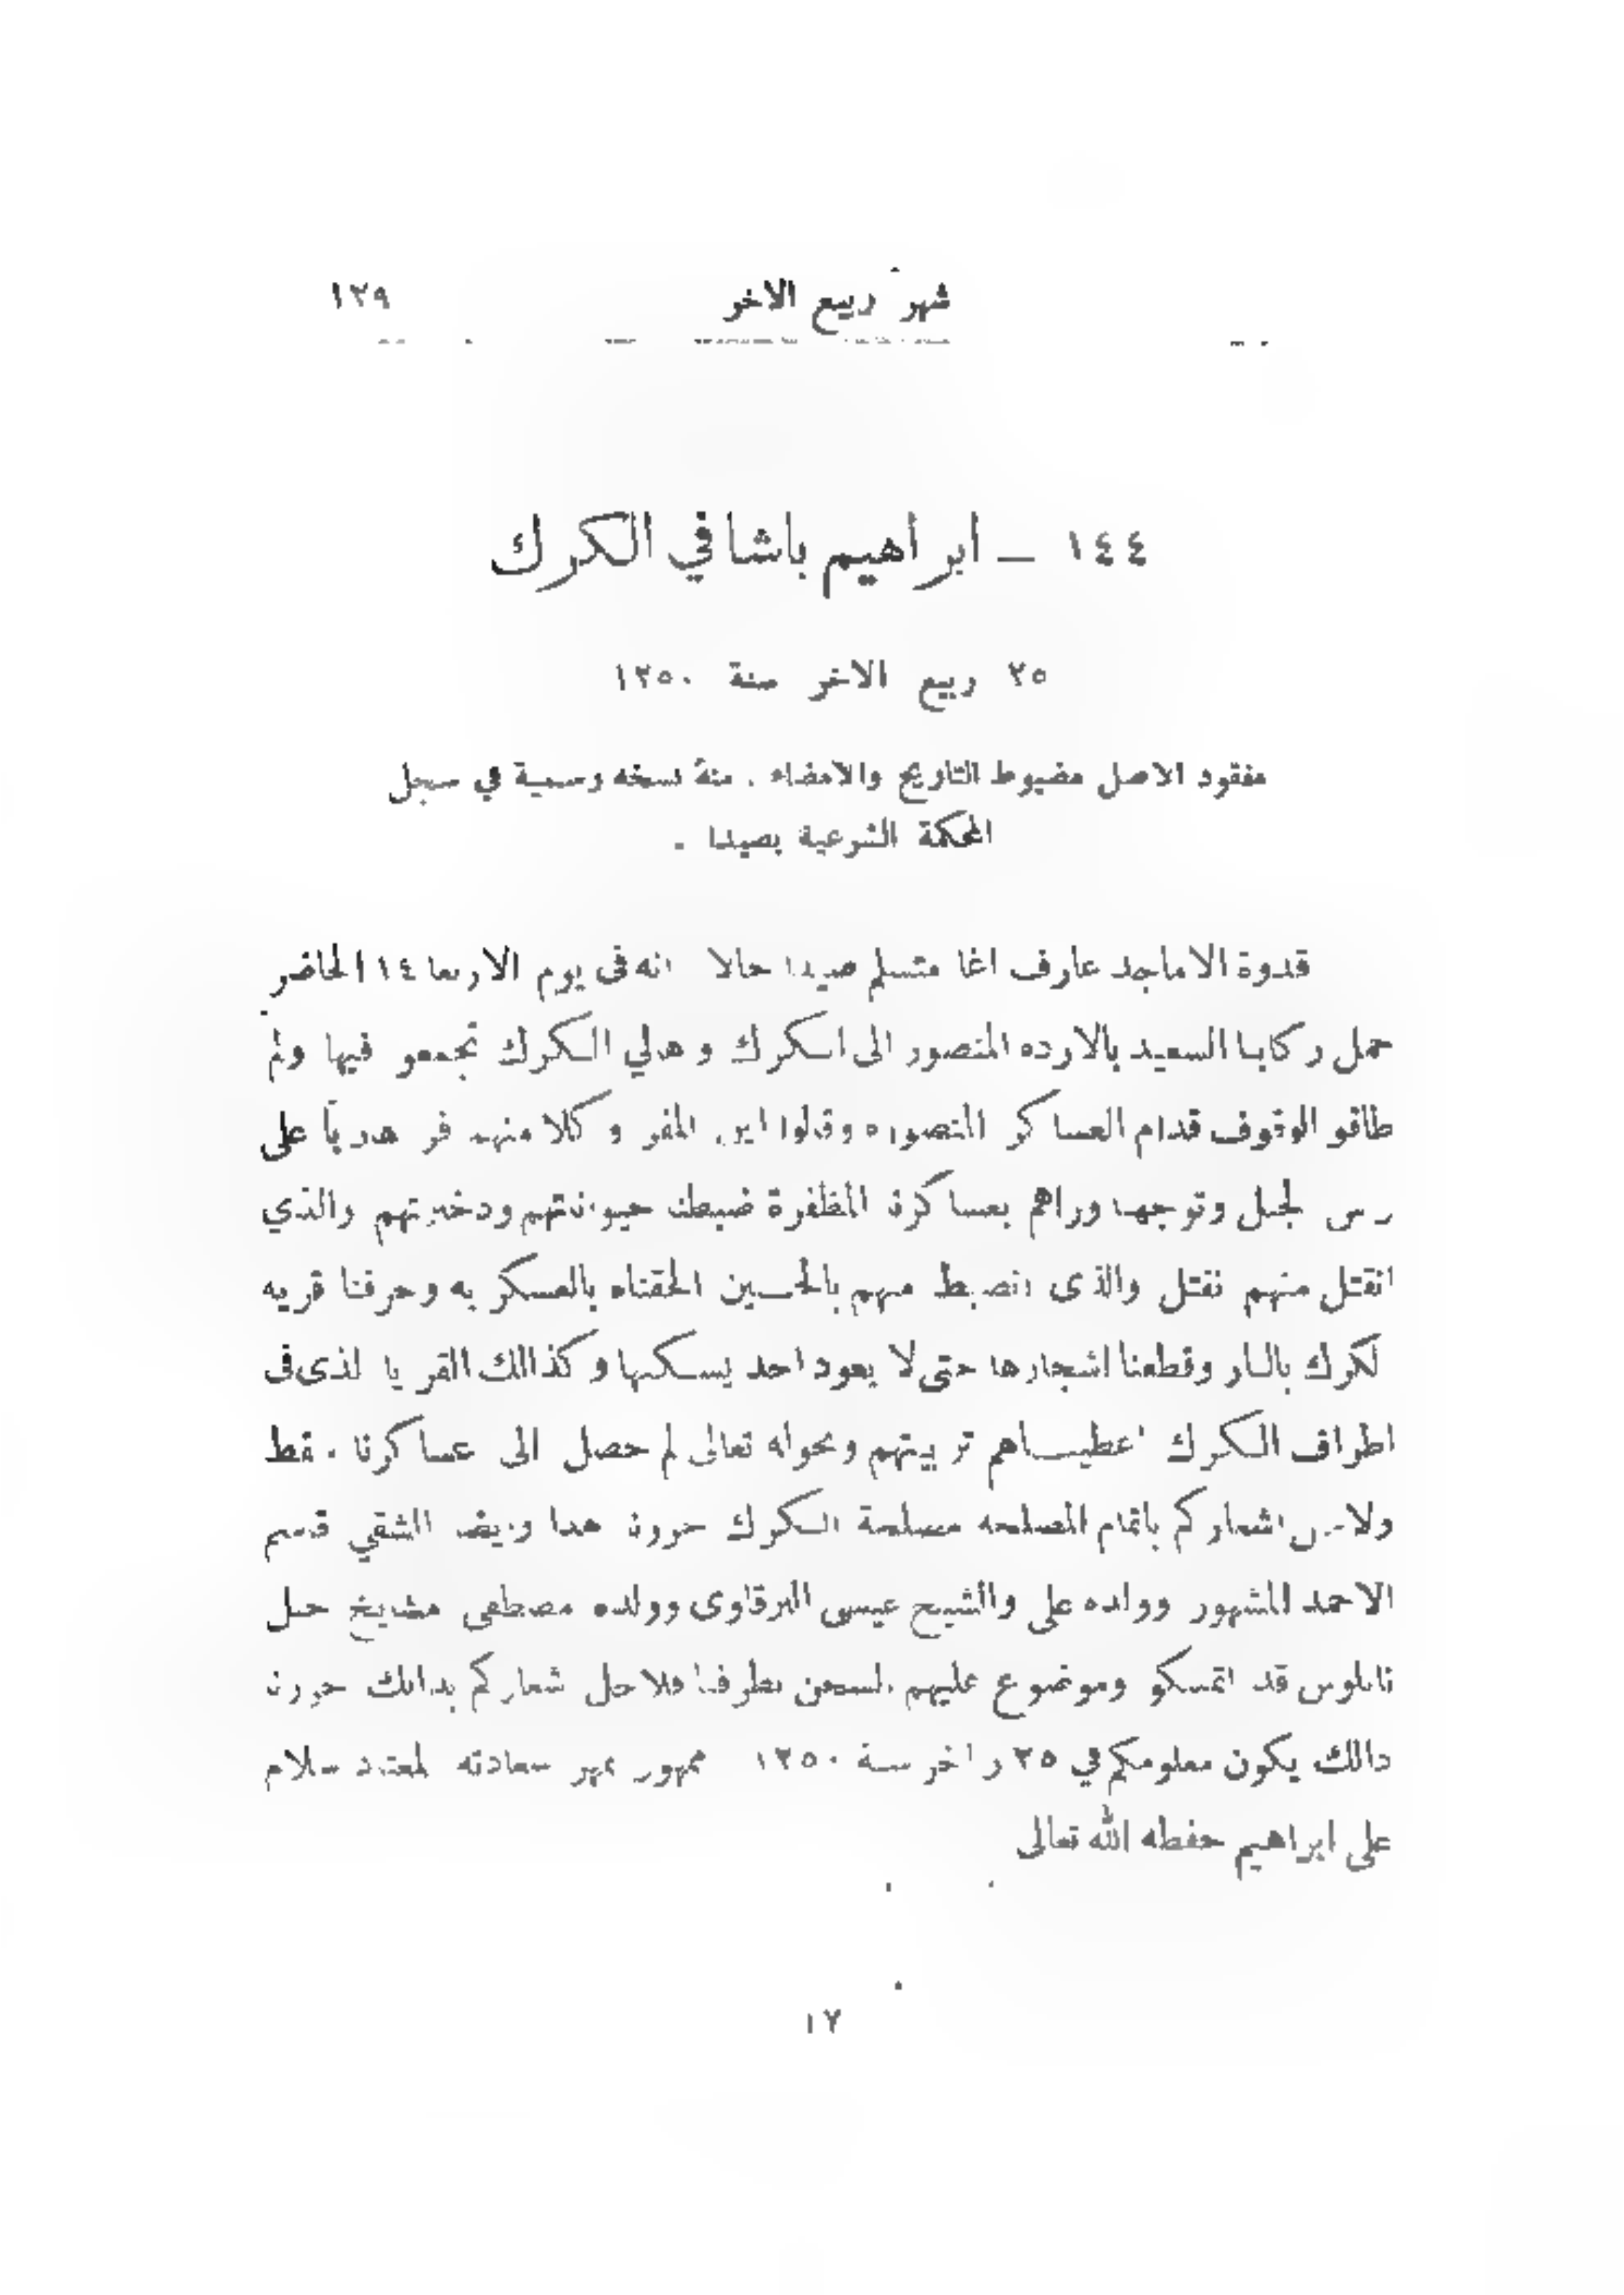 شهر ربيع الاخر ١٢٩
١٤٤ — ابراهيم باشا في الكرك
٢٥ ربيع الاخر سنة ١٢٥٠
مفقود الاصل مضبوط التاريخ والامضاء . منهُ نسخه رسمية في سجل
المحكمة الشرعية بصيدا .
قدوة الاماجد عارف اغا متسلم صيدا حالا انه فى يوم الاربعا ١٤ الحاضر
حمل ركابنا السعيد بالارده المنصور الى الكرك وهالي الكرك تجمعو فيها ولم
طاقو الوقوف قدام العساكر المنصوره وقالوا اين المفر وكلا منهم فر هارباً على
رس لجبل وتوجهنا وراهم بعساكرنا المظفرة ضبطنا حيواناتهم ودخيرتهم والذي
انقتل منهم نقتل والذى انضبط منهم بالحسين الحقناه بالعسكريه وحرقنا قريه
لكرك بالنار وقطعنا اشجارها حتى لا يعود احد يسكنها وكذالك القرايا لذى فى
اطراف الكرك اعطيناهم تربيتهم وبحوله تعالى لم حصل الى عساكرنا . قط
ولاجل اشعاركم باتمام المصلحه مصلحة الكرك حررنا هدا وايضا الشقي قاسم
الاحمد المشهور وولده على والشيخ عيسى البرقاوى وولده مصطفى مشايخ جبل
نابلوس قد اتمسكو وموضوع عليهم لسجن بطرفنا فلاجل شعاركم بدالك حررنا
دالك يكون معلومكم في ٢٥ ر اخر سنة ١٢٥٠ ممهور بمهر سعادته لمعتاد سلام
على ابراهيم حفظه الله تعالى
١٧